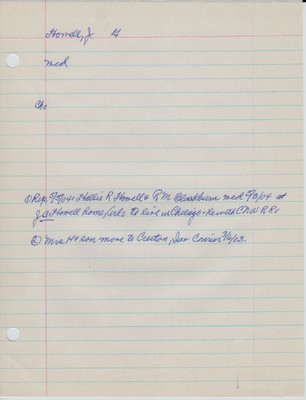 Howell, J. G
med
Ch:
① Rep. 9/5/04: Hollie R. Howell & R M Blackburn med 9/3/04 at
J. G. Howell home, to live in Chicago - he with CNW RR.
② Mrs. H & son move to Creston, Iowa Courier 3/6/03.